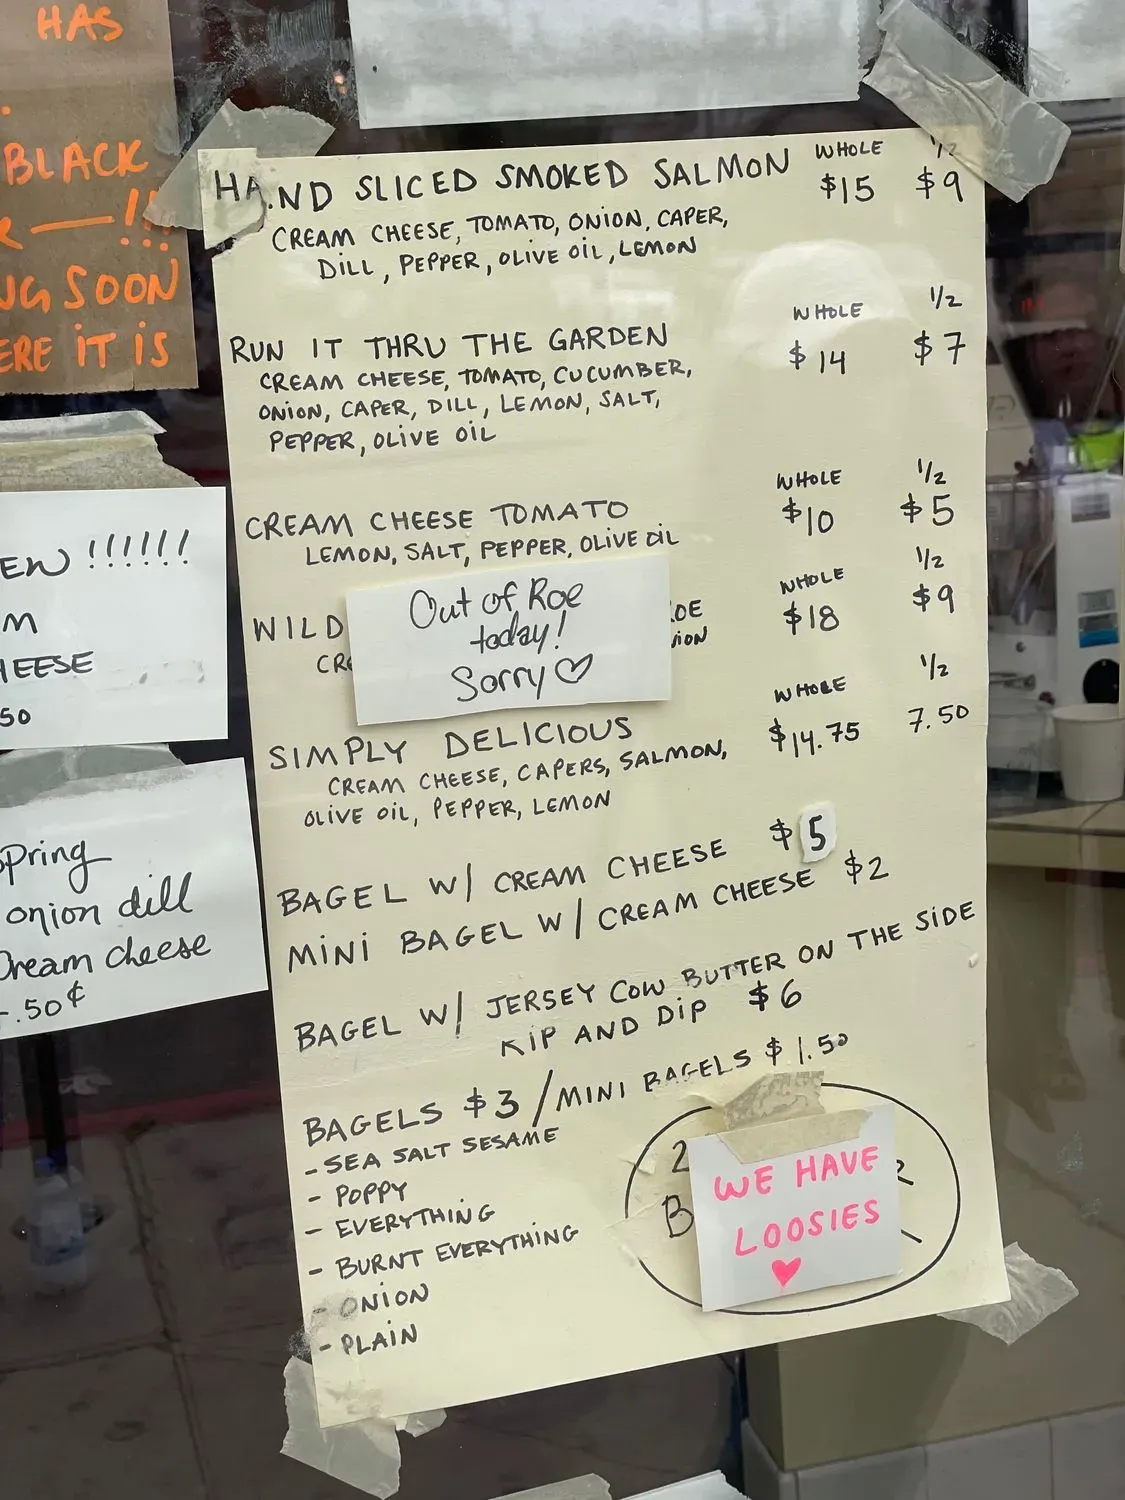 HAS
BLACK
!!!
NG SOON
ERE IT IS
EW !!!!!!
M
HEESE
50
Spring
onion dill
Cream cheese
.50¢
HAND SLICED SMOKED SALMON WHOLE 1/2
$15 $9
CREAM CHEESE, TOMATO, ONION, CAPER,
DILL, PEPPER, OLIVE OIL, LEMON
RUN IT THRU THE GARDEN WHOLE 1/2
$14 $7
CREAM CHEESE, TOMATO, CUCUMBER,
ONION, CAPER, DILL, LEMON, SALT,
PEPPER, OLIVE OIL
CREAM CHEESE TOMATO WHOLE 1/2
$10 $5
LEMON, SALT, PEPPER, OLIVE OIL
WILD OE WHOLE 1/2
$18 $9
CRE
Out of Roe
today!
Sorry ♡
SIMPLY DELICIOUS WHOLE 1/2
$14.75 7.50
CREAM CHEESE, CAPERS, SALMON,
OLIVE OIL, PEPPER, LEMON
BAGEL W/ CREAM CHEESE $5
MINI BAGEL W/ CREAM CHEESE $2
BAGEL W/ JERSEY COW BUTTER ON THE SIDE
RIP AND DIP $6
BAGELS $3 / MINI BAGELS $1.50
- SEA SALT SESAME
- POPPY
- EVERYTHING
- BURNT EVERYTHING
- ONION
- PLAIN
2
B
WE HAVE
LOOSIES
♥